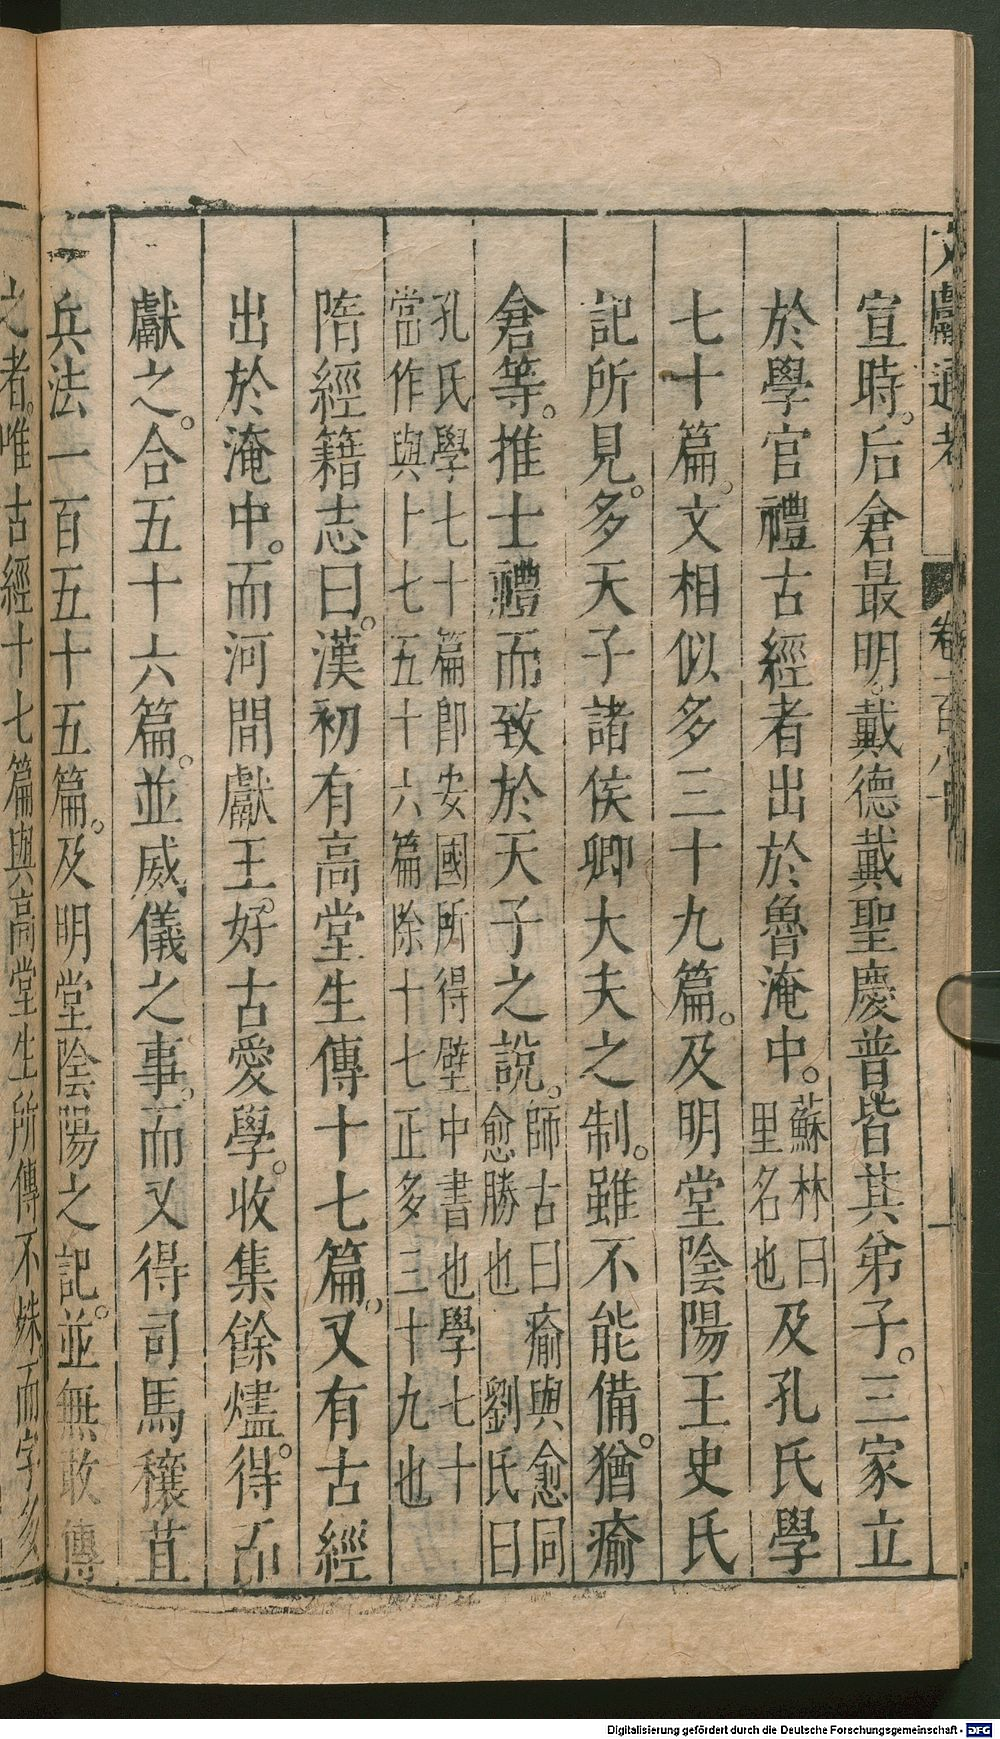 文獻通考　卷一百八十
宣時。后倉最明。戴德戴聖慶普皆其弟子。三家立
於學官禮古經者出於魯淹中。蘇林曰里名也及孔氏學
七十篇。文相似多三十九篇。及明堂陰陽王史氏
記所見。多天子諸侯卿大夫之制。雖不能備。猶瘉
倉等。推士禮而致於天子之說。師古曰瘉與愈同愈勝也劉氏曰
孔氏學七十篇卽安國所得壁中書也學七十當作與十七五十六篇除十七正多三十九也
隋經籍志曰。漢初有高堂生傳十七篇。又有古經
出於淹中。而河間獻王。好古愛學。收集餘燼。得而
獻之。合五十六篇。並威儀之事。而又得司馬穰苴
兵法一百五十五篇。及明堂陰陽之記。並無敢傳
之者。唯古經十七篇與高堂生所傳不殊。而字多
Digitalisierung gefördert durch die Deutsche Forschungsgemeinschaft - DFG